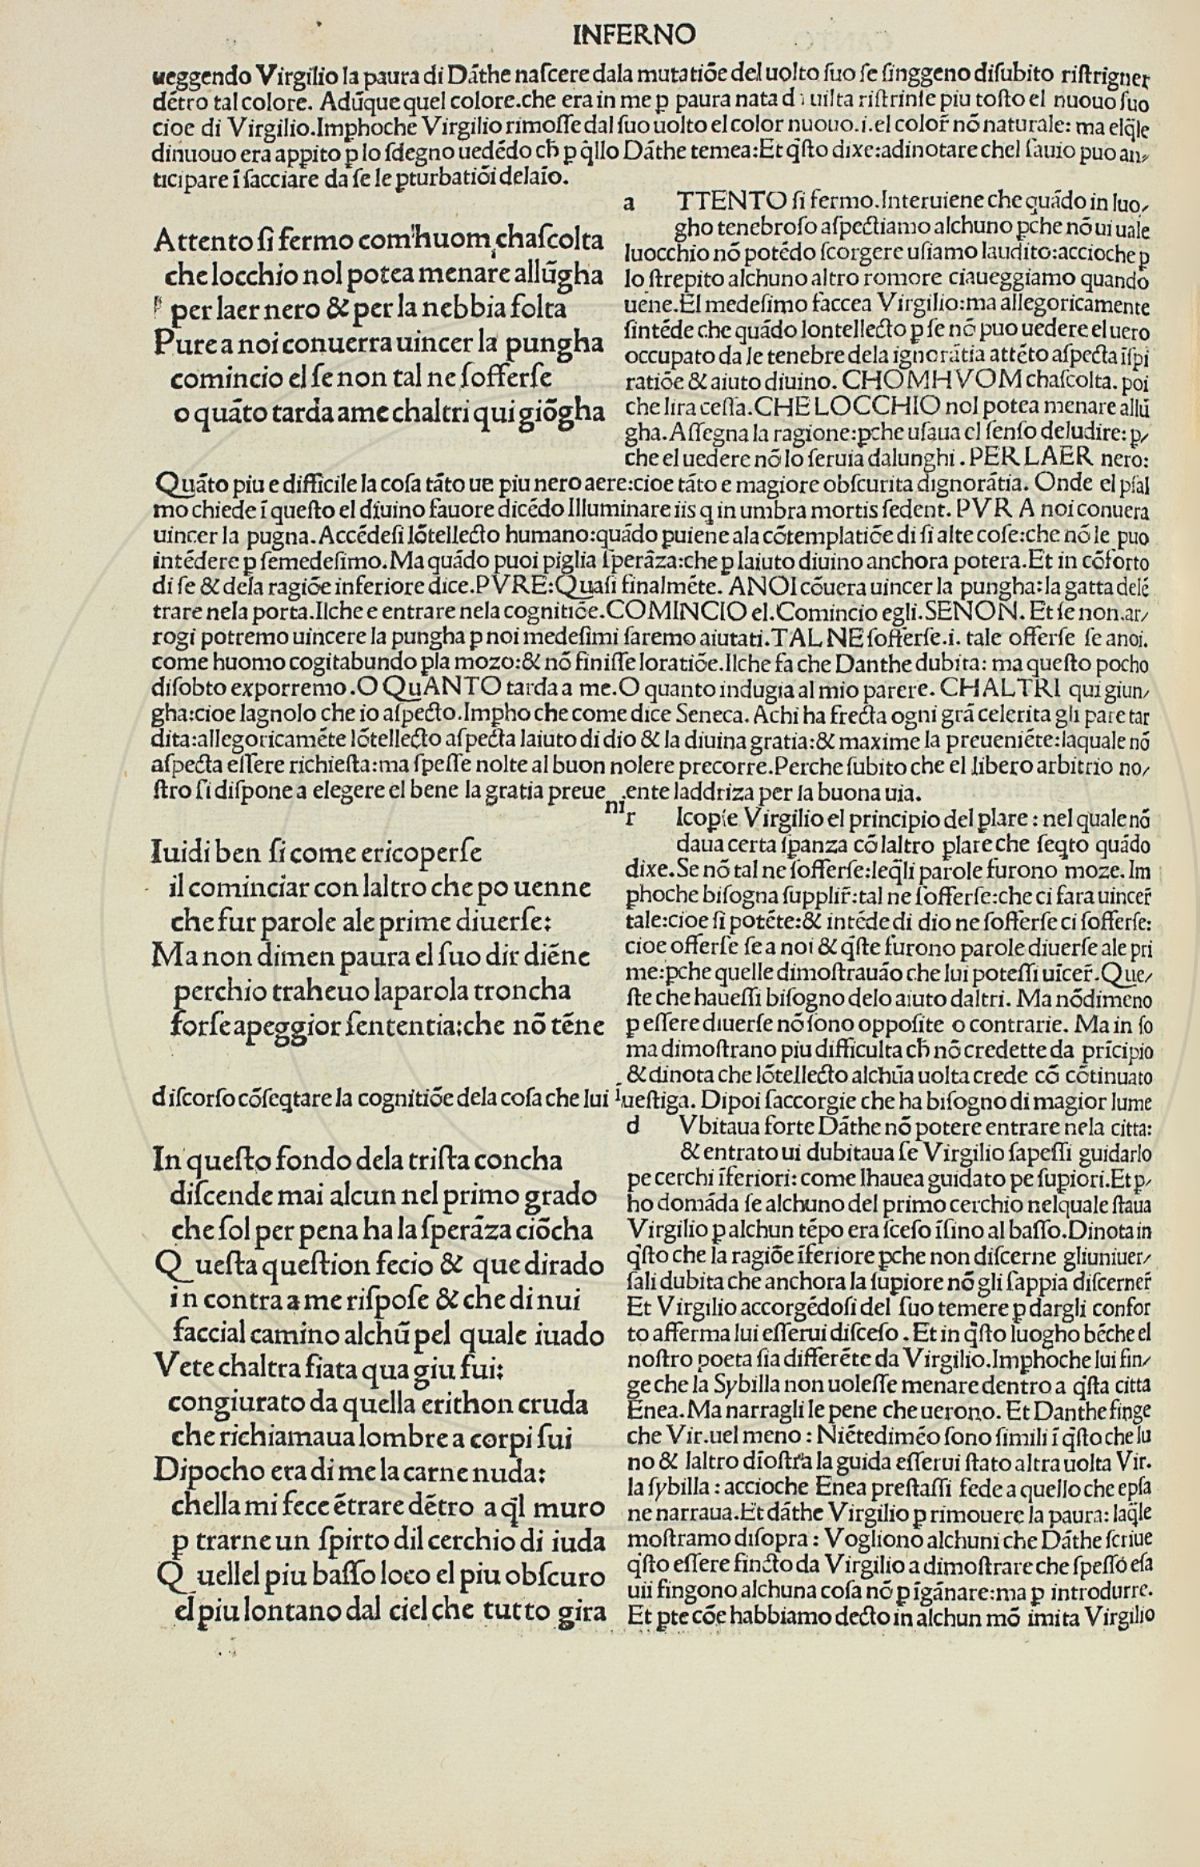 INFERNO
ueggendo Virgilio la paura di Dãthe naſcere dala mutatiõe del uolto ſuo ſe ſinggeno diſubito riſtrigner
dẽtro tal colore. Adũque quel colore.che era in me ꝑ paura nata di uilta riſtrinſe piu toſto el nuouo ſuo
cioe di Virgilio.Imphoche Virgilio rimoſſe dal ſuo uolto el color nuouo.i.el color̃ nõ naturale: ma elq̃le
dinuouo era appito ꝑ lo ſdegno uedẽdo ch̃ ꝑ q̃llo Dãthe temea:Et q̃ſto dixe:adinotare chel ſauio puo an,
ticipare ĩ ſacciare da ſe le ꝑturbatiõi delaĩo.
Attento ſi fermo com'huom chaſcolta
che locchio nol potea menare allũgha
per laer nero & per la nebbia folta
Pure a noi conuerra uincer la pungha
comincio el ſe non tal ne ſofferſe
o quãto tarda a me chaltri qui giõgha
a TTENTO ſi fermo.Interuiene che quãdo in luo,
gho tenebroſo aſpectiamo alchuno ꝑche nõ ui uale
luocchio nõ potẽdo ſcorgere uſiamo laudito:accioche ꝑ
lo ſtrepito alchuno altro romore ciaueggiamo quando
uene.El medeſimo faccea Virgilio:ma allegoricamente
ſintẽde che quãdo lontellecto ꝑ ſe nõ puo uedere el uero
occupato da le tenebre dela ignorãtia attẽto aſpecta ĩſpi
ratiõe & aiuto diuino. CHOMHVOM chaſcolta. poi
che lira ceſſa.CHE LOCCHIO nol potea menare allũ
gha.Aſſegna la ragione:ꝑche uſaua el ſenſo deludire: ꝑ,
che el uedere nõ lo ſeruia dalunghi . PER LAER nero:
Quãto piu e difficile la coſa tãto ue piu nero aere:cioe tãto e magiore obſcurita dignorãtia. Onde el pſal
mo chiede ĩ queſto el diuino fauore dicẽdo Illuminare iis q in umbra mortis ſedent. PVR A noi conuera
uincer la pugna.Accẽdeſi lõtellecto humano:quãdo puiene ala cõtemplatiõe di ſi alte coſe:che nõ le puo
intẽdere ꝑ ſemedeſimo.Ma quãdo puoi piglia ſꝑãza:che ꝑ laiuto diuino anchora potera.Et in cõforto
di ſe & dela ragiõe inferiore dice.PVRE:Quaſi finalmẽte. ANOI cõuera uincer la pungha:la gatta delẽ
trare nela porta.Ilche e entrare nela cognitiõe.COMINCIO el.Comincio egli.SENON. Et ſe non.ar,
rogi potremo uincere la pungha ꝑ noi medeſimi ſaremo aiutati.TAL NE ſofferſe.i. tale offerſe ſe anoi.
come huomo cogitabundo ꝑla mozo:& nõ finiſſe loratiõe.Ilche fa che Danthe dubita: ma queſto pocho
diſobto exporremo.O QuANTO tarda a me.O quanto indugia al mio parere. CHALTRI qui giun,
gha:cioe lagnolo che io aſpecto.Impho che come dice Seneca. Achi ha frecta ogni grã celerita gli pare tar
dita:allegoricamẽte lõtellecto aſpecta laiuto di dio & la diuina gratia:& maxime la preueniẽte:laquale nõ
aſpecta eſſere richieſta:ma ſpeſſe nolte al buon nolere precorre.Perche ſubito che el libero arbitrio no,
ſtro ſi diſpone a elegere el bene la gratia preueniente laddriza per la buona uia.
Iuidi ben ſi come ericoperſe
il cominciar con laltro che po uenne
che fur parole ale prime diuerſe:
Ma non dimen paura el ſuo dir diẽne
perchio traheuo laparola troncha
forſe apeggior ſententia:che nõ tẽne
r Icopie Virgilio el principio del plare : nel quale nõ
daua certa ſpanza cõ laltro plare che ſeqto quãdo
dixe.Se nõ tal ne ſofferſe:leq̃li parole furono moze. Im
phoche biſogna ſupplir̃:tal ne ſofferſe:che ci fara uincer̃
tale:cioe ſi potẽte:& intẽde di dio ne ſofferſe ci ſofferſe:
cioe offerſe ſe a noi & q̃ſte furono parole diuerſe ale pri
me:ꝑche quelle dimoſtrauão che lui poteſſi uĩcer̃.Que,
ſte che haueſſi biſogno delo aiuto daltri. Ma nõdimeno
ꝑ eſſere diuerſe nõ ſono oppoſite o contrarie. Ma in ſo
ma dimoſtrano piu difficulta ch̃ nõ credette da prĩcipio
& dinota che lõtellecto alchũa uolta crede cõ cõtinuato
diſcorſo cõſeqtare la cognitiõe dela coſa che lui ĩueſtiga. Dipoi ſaccorgie che ha biſogno di magior lume
In queſto fondo dela triſta concha
diſcende mai alcun nel primo grado
che ſol per pena ha la ſperãza ciõcha
Queſta queſtion fecio & que dirado
in contra a me riſpoſe & che di nui
faccial camino alchũ pel quale iuado
Vete chaltra fiata qua giu fui:
congiurato da quella erithon cruda
che richiamaua lombre a corpi ſui
Dipocho era di me la carne nuda:
chella mi fece ẽtrare dẽtro a q̃l muro
ꝑ trarne un ſpirto dil cerchio di iuda
Quellel piu baſſo loco el piu obſcuro
el piu lontano dal ciel che tutto gira
d Vbitaua forte Dãthe nõ potere entrare nela citta:
& entrato ui dubitaua ſe Virgilio ſapeſſi guidarlo
pe cerchi ĩferiori: come lhauea guidato pe ſupiori.Et ꝑ,
ho domãda ſe alchuno del primo cerchio nelquale ſtaua
Virgilio ꝑ alchun tẽpo era ſceſo ĩſino al baſſo.Dinota in
q̃ſto che la ragiõe ĩferiore ꝑche non diſcerne gliuniuer,
ſali dubita che anchora la ſupiore nõ gli ſappia diſcerner̃
Et Virgilio accorgẽdoſi del ſuo temere ꝑ dargli confor
to afferma lui eſſerui diſceſo . Et in q̃ſto luogho bẽche el
noſtro poeta ſia differẽte da Virgilio.Imphoche lui fin,
ge che la Sybilla non uoleſſe menare dentro a q̃ſta citta
Enea. Ma narragli le pene che uerono. Et Danthe finge
che Vir.uel meno : Niẽtedimẽo ſono ſimili ĩ q̃ſto che lu
no & laltro dĩoſtra la guida eſſerui ſtato altra uolta Vir.
la ſybilla : accioche Enea preſtaſſi fede a quello che epſa
ne narraua.Et dãthe Virgilio ꝑ rimouere la paura: laq̃le
moſtramo diſopra : Vogliono alchuni che Dãthe ſcriue
q̃ſto eſſere fincto da Virgilio a dimoſtrare che ſpeſſo eſa
uii fingono alchuna coſa nõ ꝑ ĩgãnare:ma ꝑ introdurre.
Et ꝑte cõe habbiamo decto in alchun mõ imita Virgilio